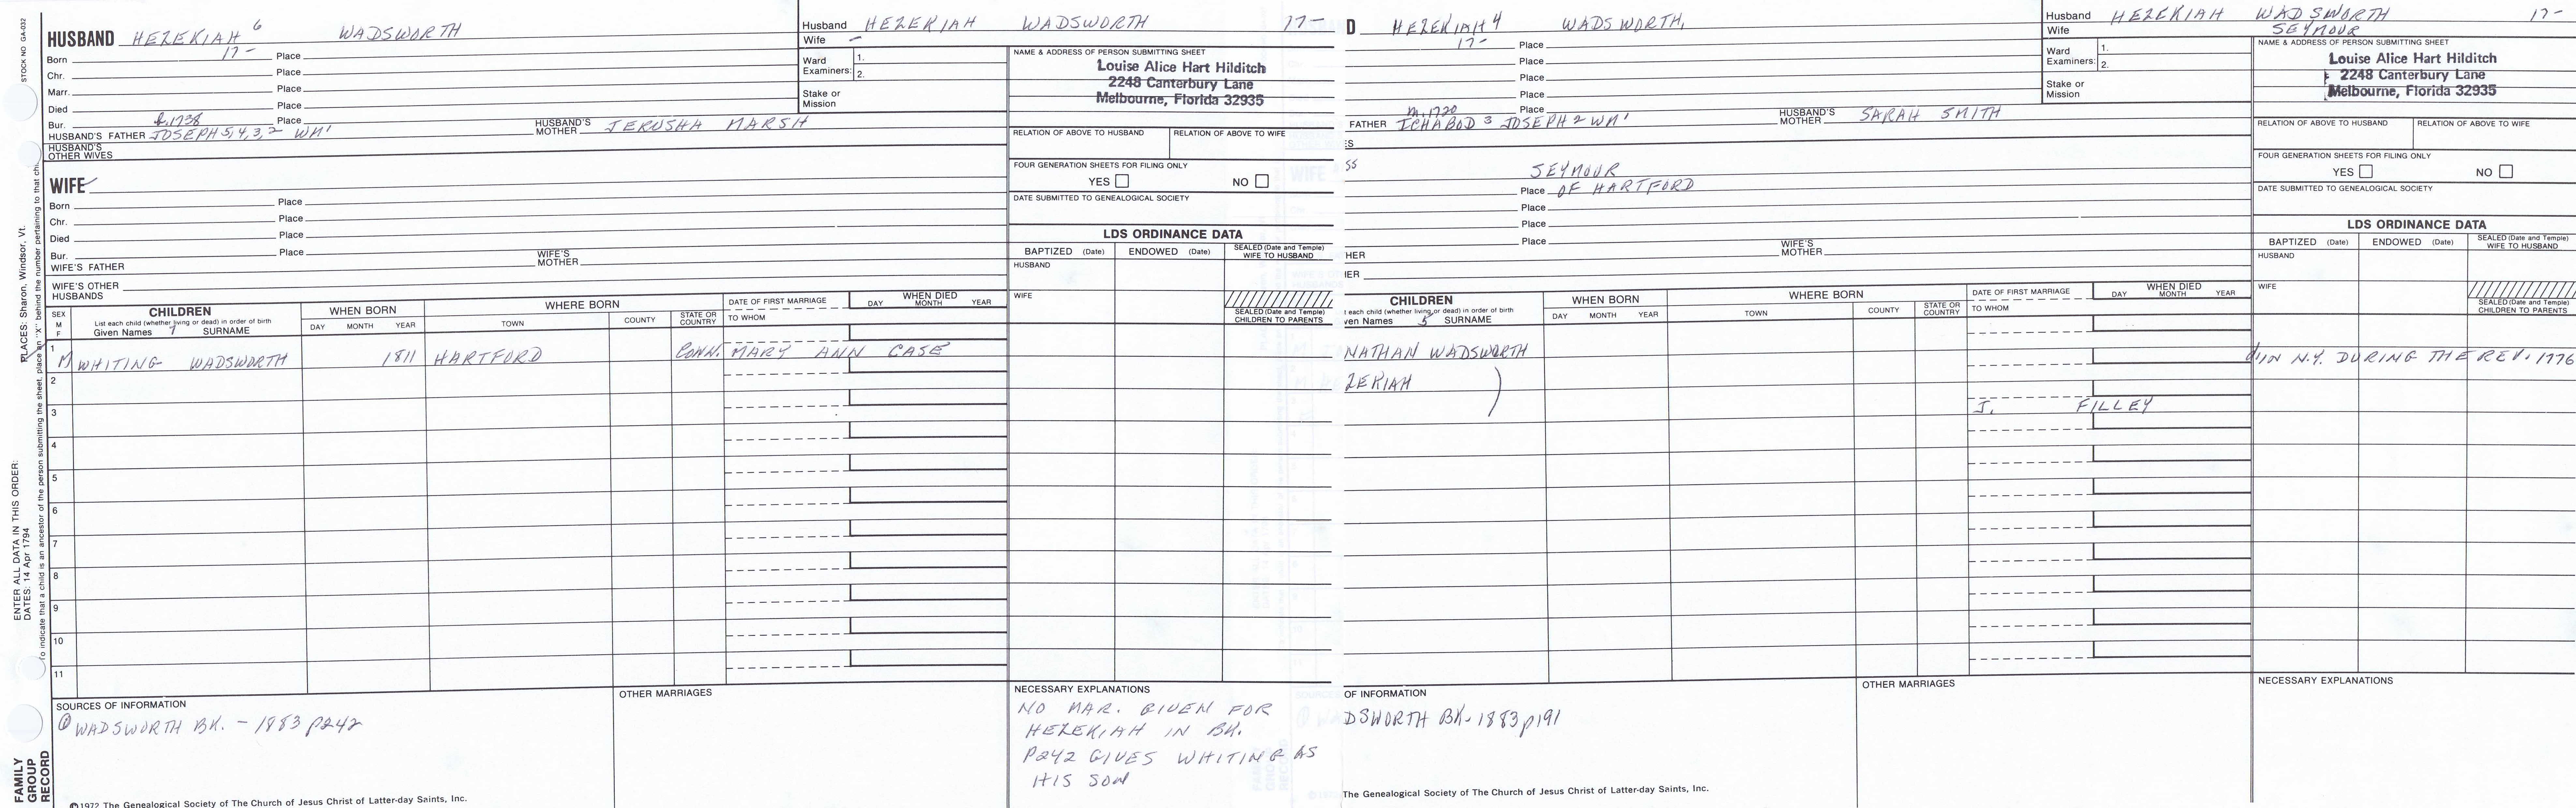 STOCK NO GA-032
HUSBAND HEZEKIAH 6 WADSWORTH
Born 17- Place
Chr. Place
Marr. Place
Died Place
Bur. Place
HUSBAND'S FATHER JOSEPH 5,4,3,2 WM' HUSBAND'S MOTHER JERUSHA MARSH
HUSBAND'S OTHER WIVES
WIFE
Born Place
Chr. Place
Died Place
Bur. Place
WIFE'S FATHER WIFE'S MOTHER
WIFE'S OTHER HUSBANDS
Husband HEZEKIAH WADSWORTH 17-
Wife -
Ward Examiners: 1. 2.
Stake or Mission
NAME & ADDRESS OF PERSON SUBMITTING SHEET
Louise Alice Hart Hilditch
2248 Canterbury Lane
Melbourne, Florida 32935
RELATION OF ABOVE TO HUSBAND RELATION OF ABOVE TO WIFE
FOUR GENERATION SHEETS FOR FILING ONLY
YES NO
DATE SUBMITTED TO GENEALOGICAL SOCIETY
LDS ORDINANCE DATA
BAPTIZED (Date) ENDOWED (Date) SEALED (Date and Temple) WIFE TO HUSBAND
HUSBAND
WIFE
SEALED (Date and Temple) CHILDREN TO PARENTS
SEX M F
CHILDREN
List each child (whether living or dead) in order of birth
Given Names 7 SURNAME
WHEN BORN
DAY MONTH YEAR
WHERE BORN
TOWN COUNTY STATE OR COUNTRY
DATE OF FIRST MARRIAGE
TO WHOM
WHEN DIED
DAY MONTH YEAR
1 M WHITING WADSWORTH 1811 HARTFORD CONN. MARY ANN CASE
2
3
4
5
6
7
8
9
10
11
SOURCES OF INFORMATION
① WADSWORTH BK. - 1883 p242
OTHER MARRIAGES
NECESSARY EXPLANATIONS
NO MAR. GIVEN FOR
HEZEKIAH IN BK.
P242 GIVES WHITING AS
HIS SON
©1972 The Genealogical Society of The Church of Jesus Christ of Latter-day Saints, Inc.
PLACES: Sharon, Windsor, Vt.
To indicate that a child is an ancestor of the person submitting the sheet, place an "X" behind the number pertaining to that chi
ENTER ALL DATA IN THIS ORDER:
DATES: 14 Apr 1794
FAMILY GROUP RECORD
D HEZEKIAH 4 WADSWORTH,
17- Place
Place
Place
Place
m. 1720 Place
FATHER ICHABOD 3 JOSEPH 2 WM' HUSBAND'S MOTHER SARAH SMITH
ES
SS SEYMOUR
Place OF HARTFORD
Place
Place
Place
HER WIFE'S MOTHER
IER
Husband HEZEKIAH WADSWORTH 17-
Wife SEYMOUR
Ward Examiners: 1. 2.
Stake or Mission
NAME & ADDRESS OF PERSON SUBMITTING SHEET
Louise Alice Hart Hilditch
2248 Canterbury Lane
Melbourne, Florida 32935
RELATION OF ABOVE TO HUSBAND RELATION OF ABOVE TO WIFE
FOUR GENERATION SHEETS FOR FILING ONLY
YES NO
DATE SUBMITTED TO GENEALOGICAL SOCIETY
LDS ORDINANCE DATA
BAPTIZED (Date) ENDOWED (Date) SEALED (Date and Temple) WIFE TO HUSBAND
HUSBAND
WIFE
SEALED (Date and Temple) CHILDREN TO PARENTS
CHILDREN
t each child (whether living or dead) in order of birth
ven Names 5 SURNAME
WHEN BORN
DAY MONTH YEAR
WHERE BORN
TOWN COUNTY STATE OR COUNTRY
DATE OF FIRST MARRIAGE
TO WHOM
WHEN DIED
DAY MONTH YEAR
NATHAN WADSWORTH d. IN N.Y. DURING THE REV. 1776
ZEKIAH )
J. FILLEY
OF INFORMATION
DSWORTH BK. 1883 p191
OTHER MARRIAGES
NECESSARY EXPLANATIONS
The Genealogical Society of The Church of Jesus Christ of Latter-day Saints, Inc.